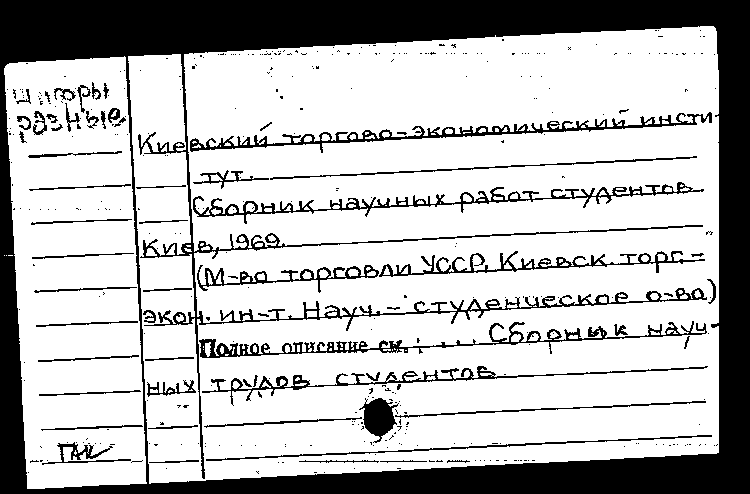 Шифры
разные
Киевский торгово-экономический инсти-
тут.
Сборник научных работ студентов
Киев, 1969.
(М-во торговли УССР, Киевск. торг.-
экон. ин-т. Науч.- студенческое о-во)
Полное описание см.: ... Сборник науч-
ных трудов студентов
ПАК